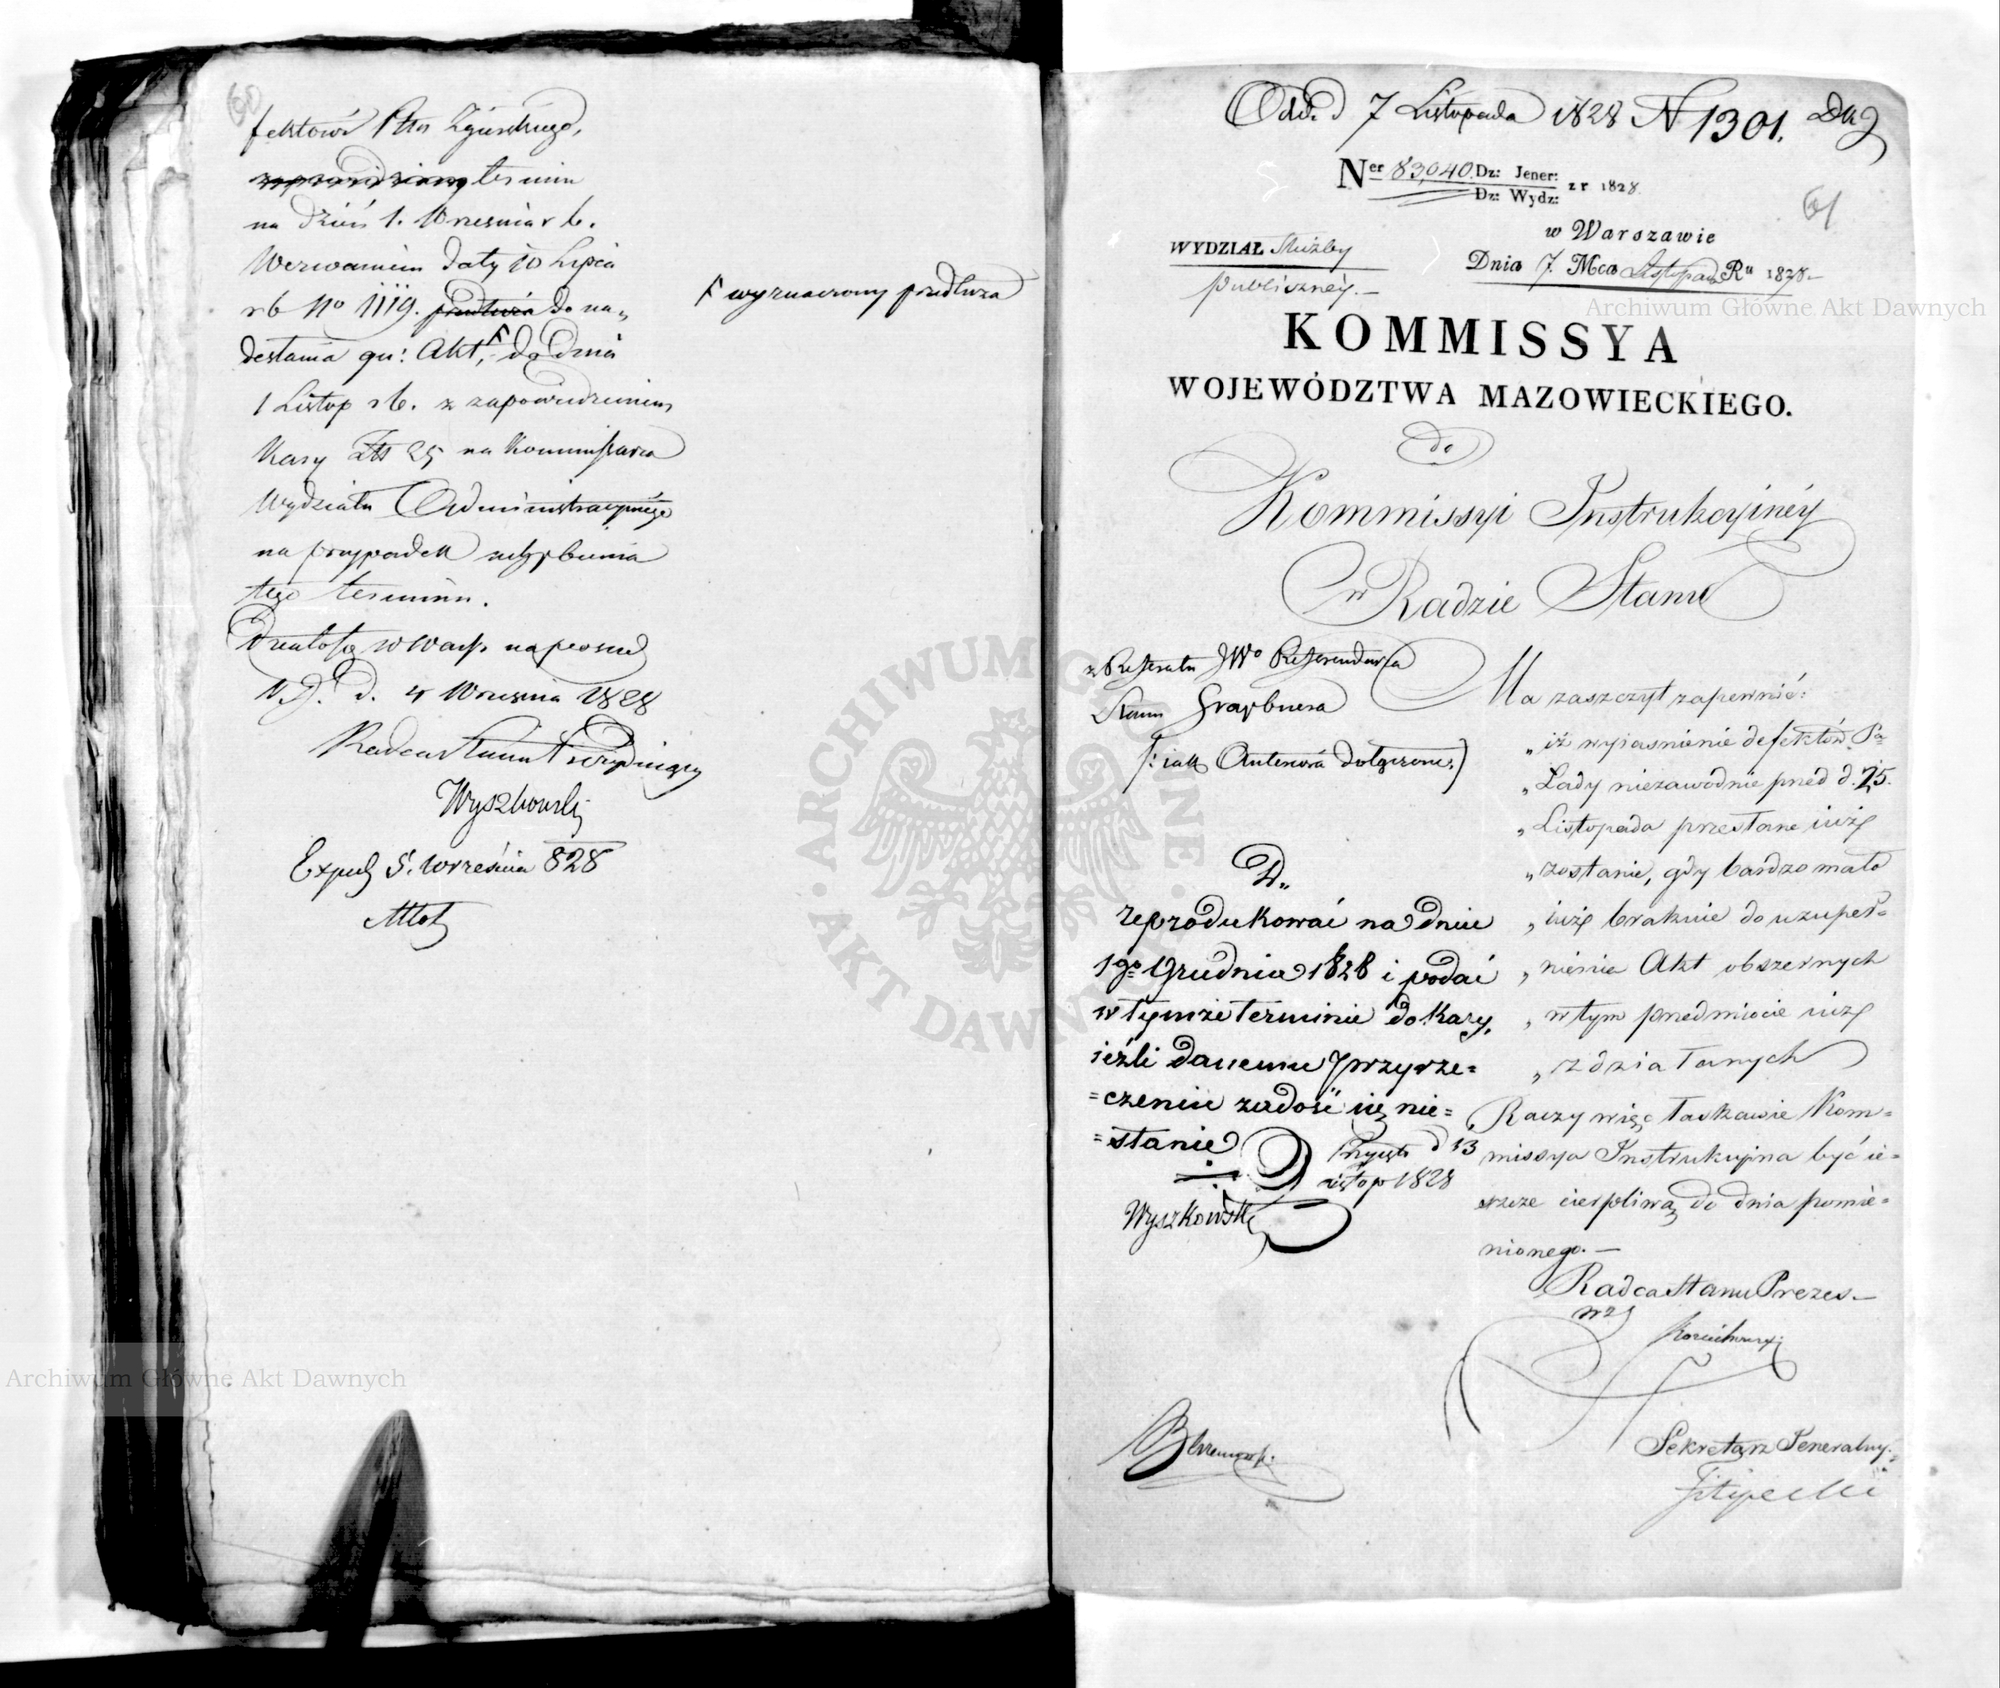 60
fektowi Ptu Zgierskiego,
termin
na dzień 1. Września r b.
Wezwaniem daty 10 Lipca
rb No 1119. do na„
desłania qu: Akt, do dnia
1 Listop rb. z zapowiedzeniem
Kary Złt 25 na Kommissarza
Wydziału Administracyinego
na przypadek uchybienia
tego terminu.
Działo się w Warsz. na posied
d. 4 Września 1828
Radca Stanu Prezyduiący
Wyszkowski
Exped 5. Września 828
F wyznaczony przedłuża
Odd. d 7 Listopada 1828 N 1301.
Ner 83,040. Dz: Jener: z r 1828.
Dz: Wydz:
61
w Warszawie
WYDZIAŁ Służby
publicznéy.—
Dnia 7. Mca Listopada Ru 1828.—
KOMMISSYA
WOJEWÓDZTWA MAZOWIECKIEGO.
do
Kommissyi Instrukcyinéy
w Radzie Stanu
z Referatu JWo Referendarza
Stanu Graybnera
Ma zaszczyt zapewnić:
„iż wyiasnienie defektów Pa
„Lady niezawodnie przed d. 25.
„Listopada przesłane iuż
„zostanie, gdy bardzo mało
„iuż braknie do uzupeł=
„nienia Akt obszernych
„w tym przedmiocie iuż
„zdziałanych
Raczy więc łaskawie Kom=
missya Instrukcyina być ie=
szcze cierpliwą do dnia pomie=
nionego.—
Radca Stanu Prezes—
wz
Sekretarz Jeneralny.
Filipecki
D„
reprodukować na dniu
1go Grudnia 1828 i podać
w tymże terminie do Kary,
ieźli danemu przyrze=
=czeniu zadość się nie=
=stanie
Przyięto d 13
Listop 1828
Wyszkowski
Archiwum Główne Akt Dawnych
Archiwum Główne Akt Dawnych
ARCHIWUM GŁÓWNE · AKT DAWNYCH ·